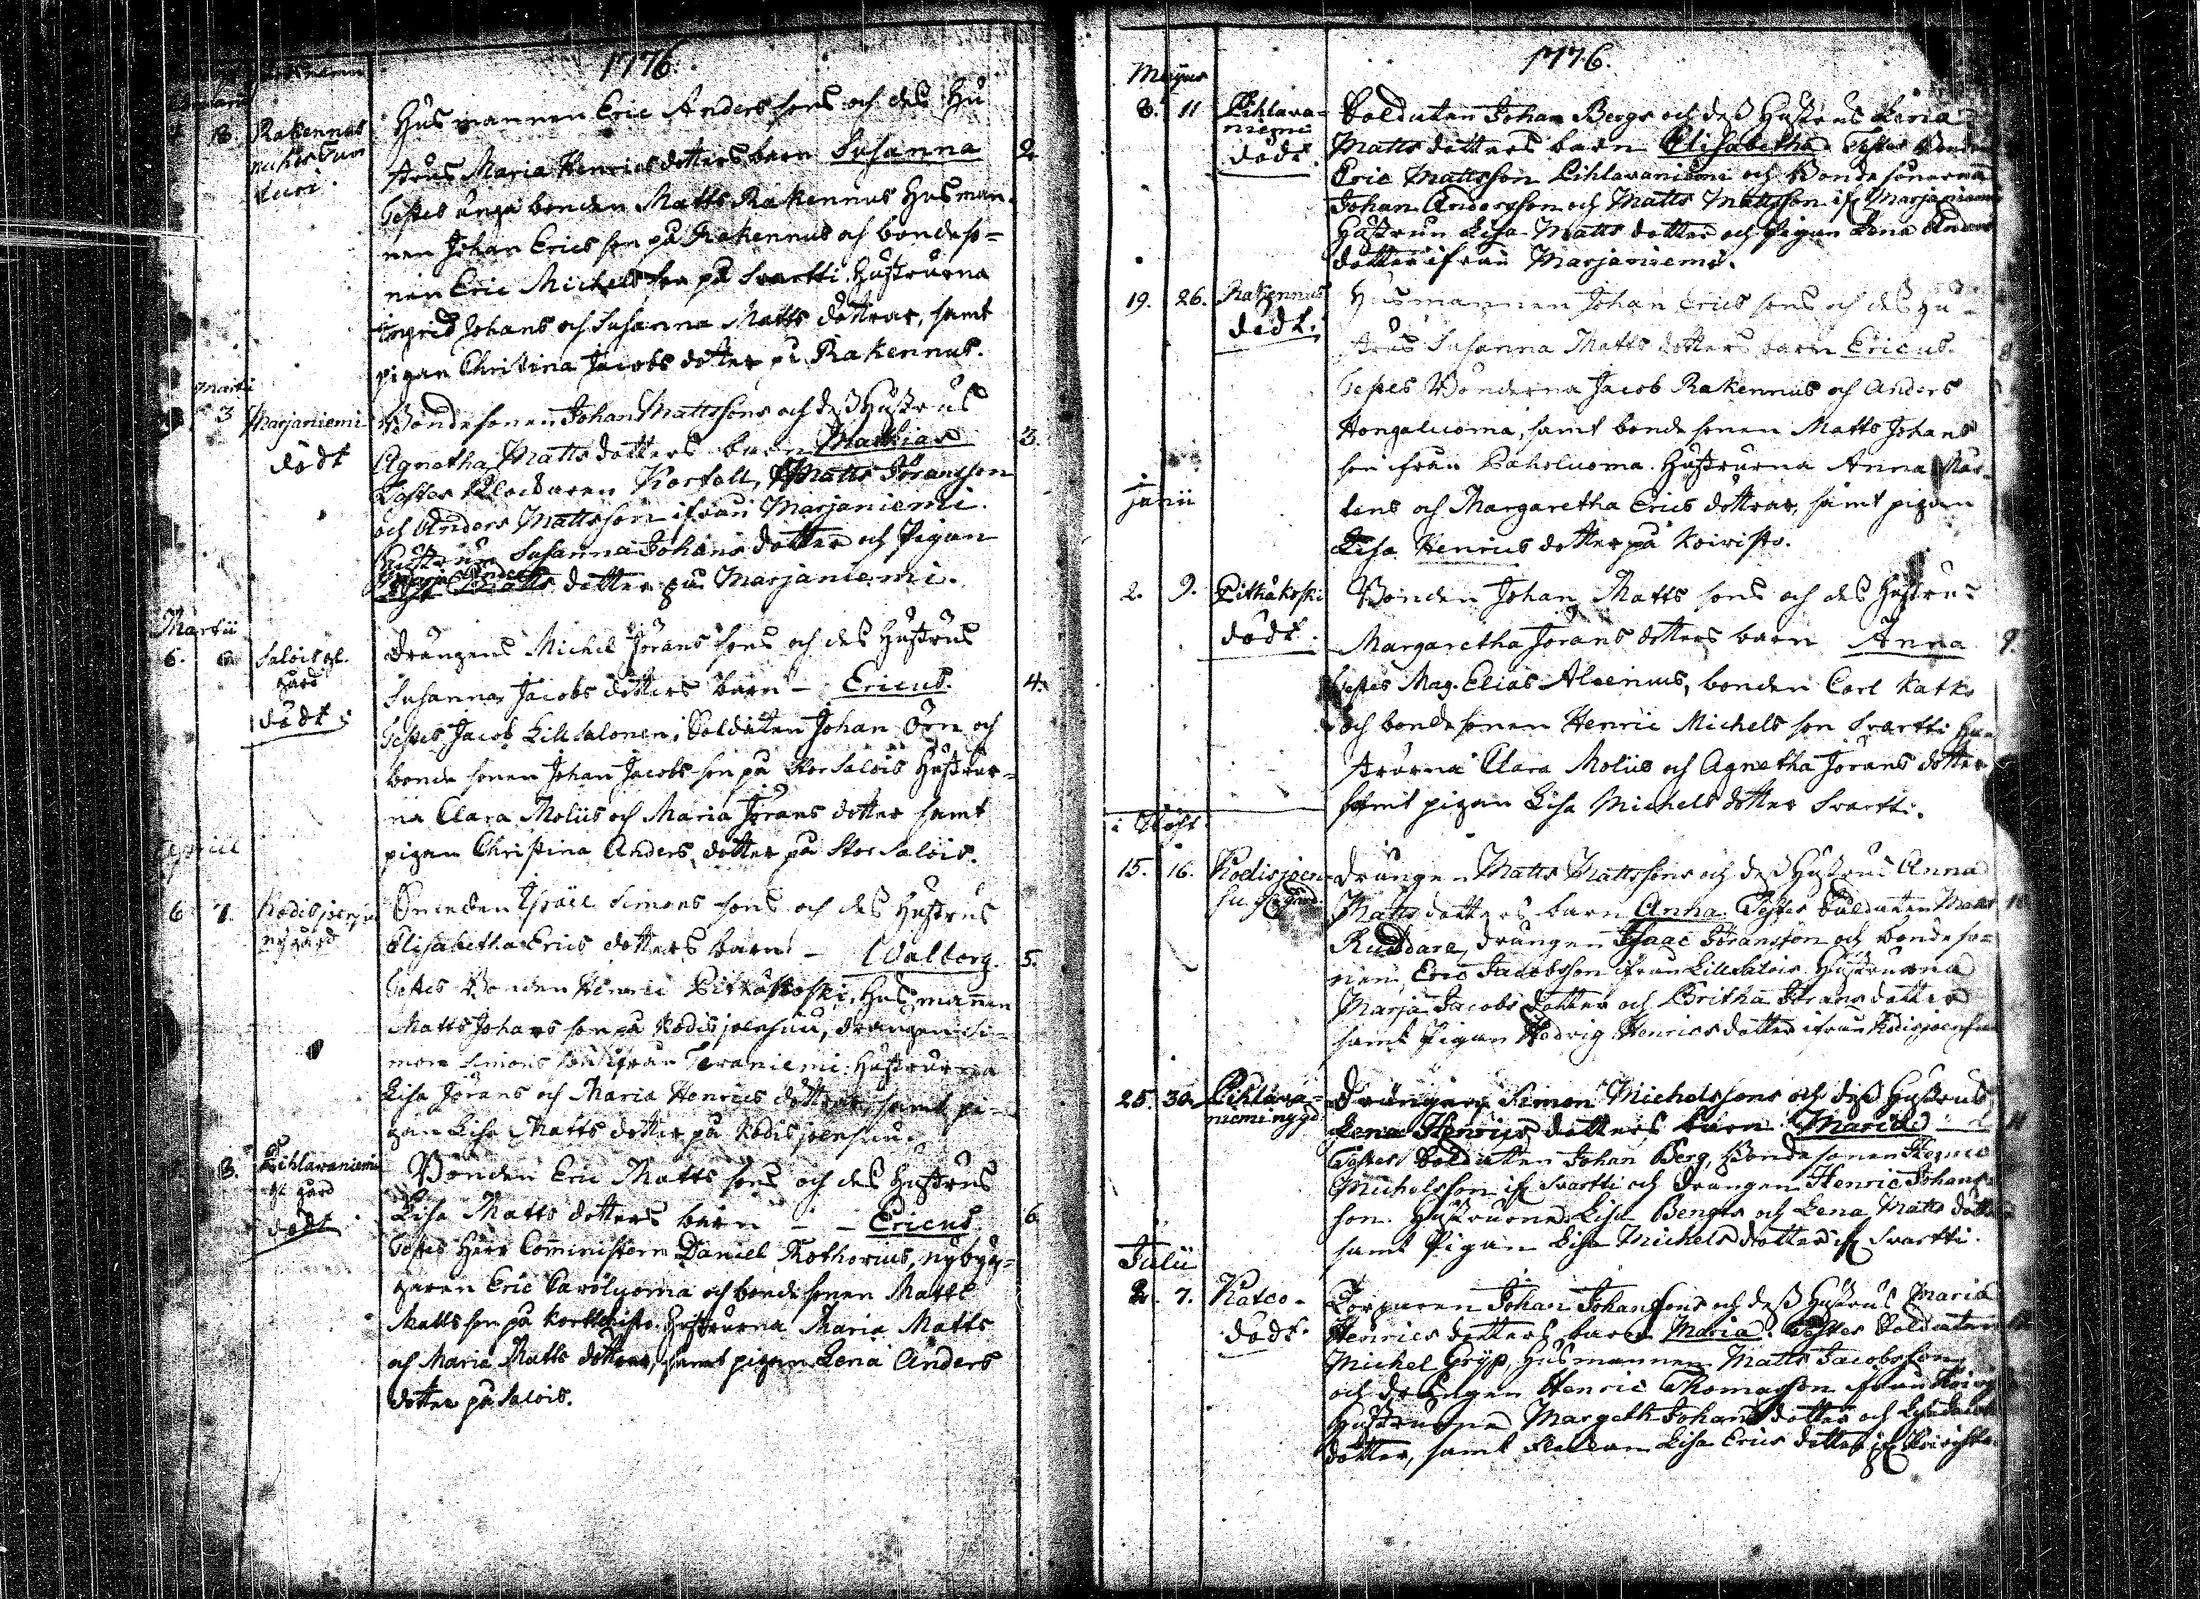 1776.
18. Rakennus
Husmannen Eric Anders sons och des Hu
strus Maria Henrics dotters barn Susanna 2.
Testes unga bonden Matts Rakennus Husman-
nen Johan Erics son på Rakennus och bondeso-
nen Eric Michels son på Svartti. Hustrurna
Ingrid Johans och Susanna Matts döttrar, samt
pigan Christina Jacobs dotter på Rakennus.
Martii
3 Marjaniemi
död
Bondesonen Johan Mattssons och dess Hustrus
Agnetha Matts dotters barn Mathias 3.
Testes Klockaren Kortell, Matts Jöransson
och Anders Mattsson ifrån Marjaniemi.
Hustrun Susanna Johans dotter och Pigan
Matts dotter på Marjaniemi.
Martii
6. Salois gl.
gård
död
Drängens Michel Jörans sons och des Hustrus
Susanna Jacobs dotters barn - Ericus. 4.
Testes Jacob Lill Salonen, Soldaten Johan Örn och
bonde sonen Johan Jacobs son på Stor Salois Hustrur-
na Clara Moliis och Maria Jörans dotter samt
pigan Christina Anders dotter på Stor Salois.
Aprill
6 7. Kodisjoensu
nygård
Smeden Israel Simons sons och des Hustrus
Elisabetha Erics dotters barn - Walborg. 5.
Testes Bonden Henric Pitkäkoski, Husmannen
Matts Johans son på Kodisjoensuu, drängen Si-
mon Simons son ifrån Teraniemi. Hustrurna
Lisa Jörans och Maria Henrics döttrar, samt pi-
gan Lisa Matts dotter på Kodisjoensuu.
8. Pihlavaniemi
gl. gård
död
Bonden Eric Matts sons och des Hustrus
Lisa Matts dotters barn - - Ericus. 6
Testes Herr Comministern Daniel Rothovius, nybyg-
garen Eric Savoluoma och bonde sonen Matts
Matts son på Korttehisto. Hustrurna Maria Matts
och Maria Matts döttrar, samt pigan Lena Anders
dotter på Salois.
1776.
Majus
8. 11 Pihlava-
niemi
död.
Soldaten Johan Bergs och dess Hustrus Lena
Matts dotters barn Elisabetha. Testes Bonden
Eric Mattsson Pihlavaniemi och Bondesönerna
Johan Andersson och Matts Mattsson if. Marjaniemi
Hustrun Lisa Matts dotter och Pigan Lena Anders
dotter ifrån Marjaniemi.
19. 26. Rakennus
död.
Husmannen Johan Erics sons och des Hu-
strus Susanna Matts dotters barn Ericus.
Testes Bönderna Jacob Rakennus och Anders
Hongaluoma, samt bonde sonen Matts Johans
son ifrån Paholuoma. Hustrurna Anna Mår-
tens och Margaretha Erics döttrar, samt pigan
Lisa Henrics dotter på Koivisto.
Junii
2. 9. Pitkäkoski
död.
Bonden Johan Matts sons och des Hustrus
Margaretha Jörans dotters barn Anna 9
Testes Mag. Elias Alcenius, bonden Carl Katko
och bonde sonen Henric Michels son Svartti Hu-
strurna Clara Moliis och Agnetha Jörans dotter
samt pigan Lisa Michels dotter Svartti.
15. 16. Kodisjoen-
su
Drängen Matts Mattssons och dess Hustrus Anna
Matts dotters barn Anna. Testes Soldaten Matts 10
Ruddare, drängen Isaac Jöransson och bondeso-
nen Eric Jacobsson ifrån Lill Salois. Hustrurna
Marja Jacobs dotter och Britha Jörans dotter
samt Pigan Hedvig Henrics dotter ifrån Kodisjoensuu
25. 30. Pihlava-
niemi nygd
Drängen Simon Michelssons och dess Hustrus
Lena Henrics dotters barn Maria 11
Testes Soldaten Johan Berg, Bonde sonen
Michelsson if. Svartti och Drängen Henric Johans
son. Hustrurna Lisa Bengts och Lena Matts dotter
samt Pigan Lisa Michels dotter if. Svartti.
Julii
7. Katco-
död.
Torparen Johan Johanssons och dess Hustrus Maria
Henrics dotters barn Maria. Testes Soldaten
Michel Gryp, Husmannen Matts Jacobsson
och drängen Henric Thomasson ifrån
Hustrurna Margeth Johans dotter och
dotter, samt Lisa Erics dotter if. Koivisto.